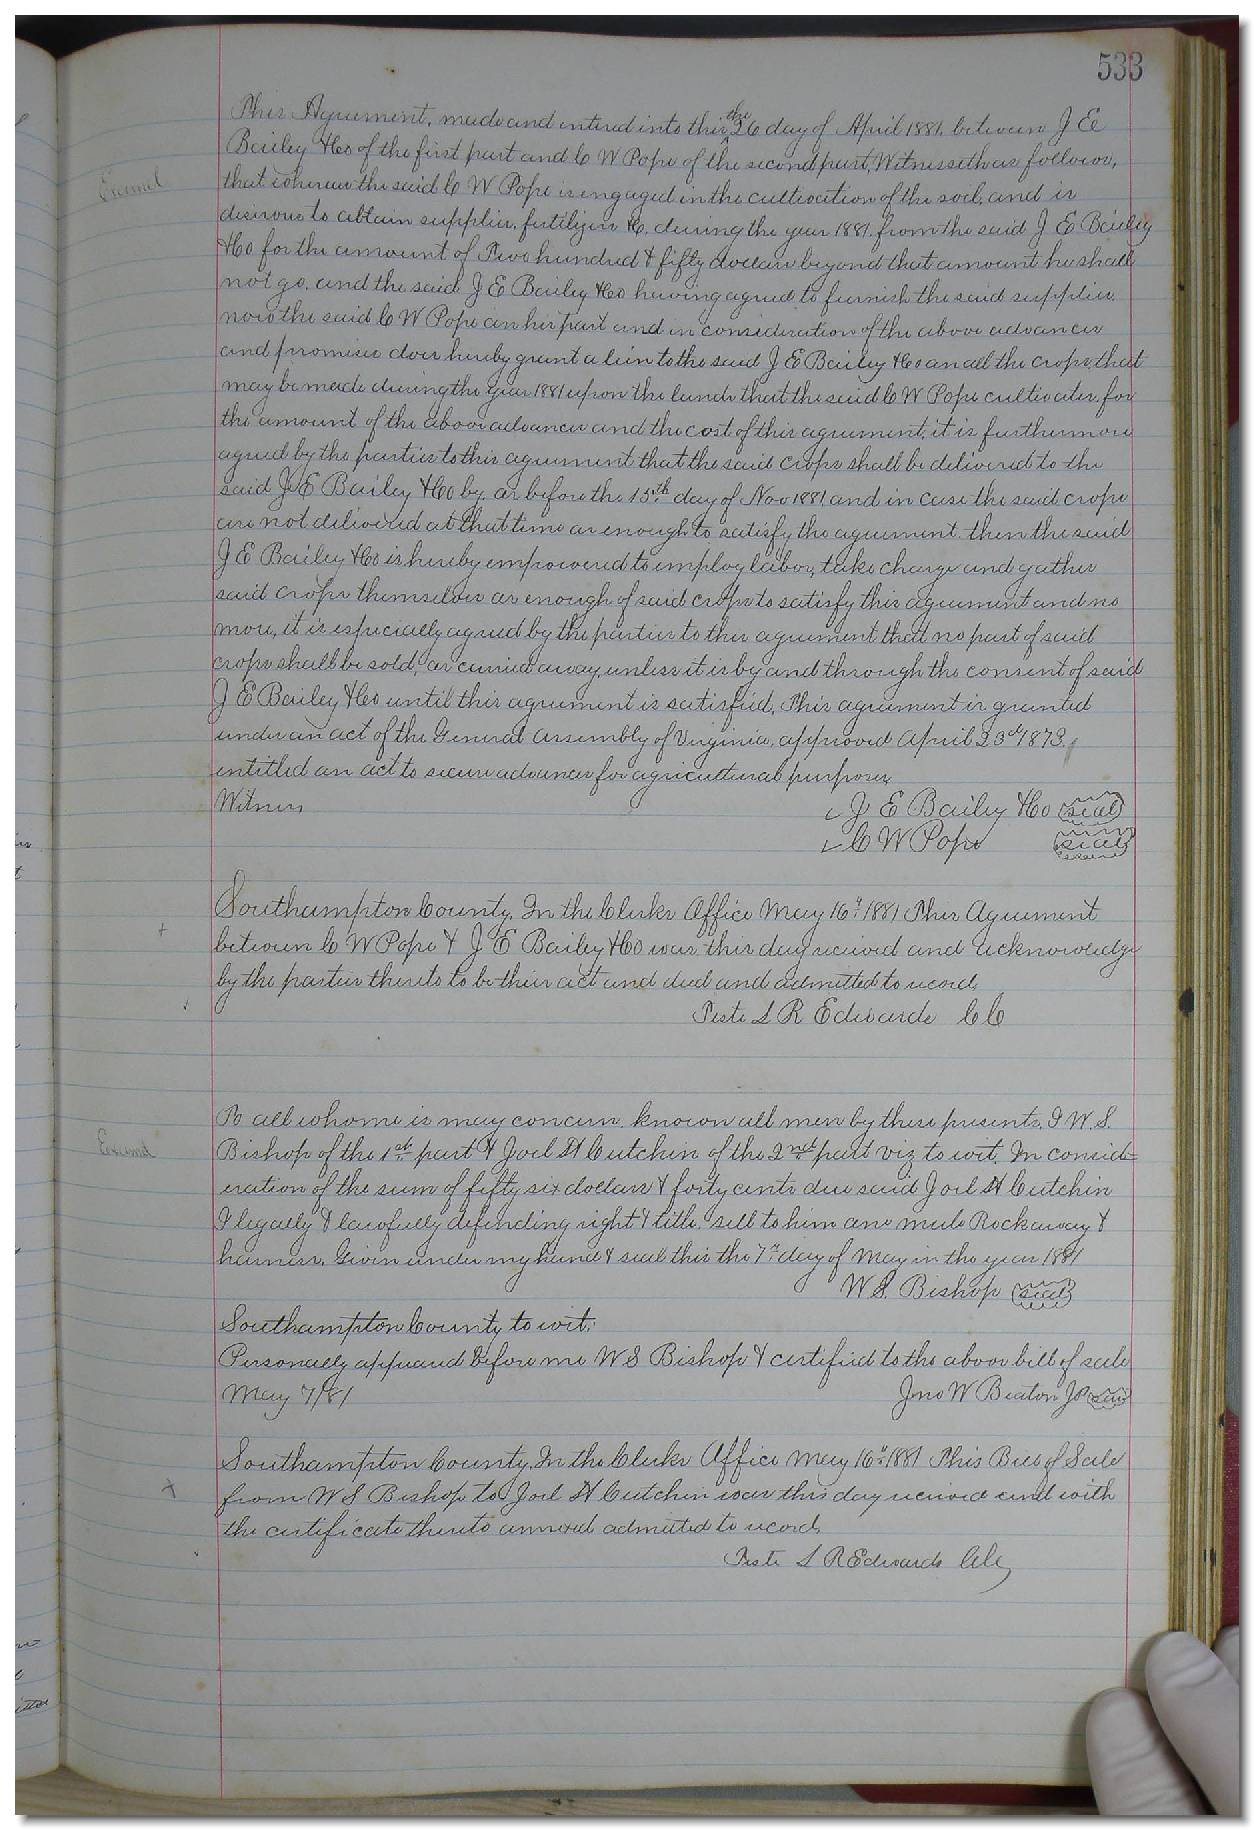 533
This Agreement, made and entered into this the 26 day of April 1881, between J E
Bailey &Co of the first part and C W Pope of the second part, Witnesseth as follows,
Examd
that whereas the said C W Pope is engaged in the cultivation of the soil, and is
desirous to obtain supplies, fertilizers &c. during the year 1881 from the said J E Bailey
&Co for the amount of Two hundred & fifty dollars beyond that amount he shall
not go, and the said J E Bailey &Co having agreed to furnish the said supplies
now the said C W Pope on his part and in consideration of the above advances
and promises does hereby grant a lien to the said J E Bailey &Co on all the crops, that
may be made during the year 1881 upon the lands that the said C W Pope cultivates for
the amount of the above advances and the cost of this agreement, it is furthermore
agreed by the parties to this agreement that the said crops shall be delivered to the
said J E Bailey &Co by or before the 15th day of Nov 1881 and in case the said crops
are not delivered at that time or enough to satisfy the agreement. then the said
J E Bailey &Co is hereby empowered to employ labor, take charge and gather
said crops themselves or enough of said crops to satisfy this agreement and no
more, it is especially agreed by the parties to this agreement that no part of said
crops shall be sold, or carried away, unless it is by and through the consent of said
J E Bailey &Co until this agreement is satisfied, This agreement is granted
under an act of the General Assembly of Virginia, approved April 23d 1873,
entitled an act to secure advances for agricultural purposes
Witness J E Bailey &Co (seal)
C W Pope (seal)
Southampton County, In the Clerks Office May 16th 1881 This Agreement
between C W Pope & J E Bailey &Co was this day received and acknowledge
by the parties thereto to be their act and deed and admitted to record,
Teste L R Edwards C C
To all whome is may concern known all men by these presents, I W. S.
Examd
Bishop of the 1st part & Joel H Cutchin of the 2nd part viz to wit. In consid=
eration of the sum of fifty six dollars & forty cents due said Joel H Cutchin
I legally & lawfully defending right & title, sell to him one mule Rockaway &
harness. Given under my hand & seal this the 7th day of May in the year 1881
W. S. Bishop (seal)
Southampton County to wit:
Personally appeard before me W S Bishop & certified to the above bill of sale
May 7/81 Jno W Beaton JP (seal)
Southampton County, In the Clerks Office May 16th 1881 This Bill of Sale
from W S Bishop to Joel H Cutchin was this day received and with
the certificate thereto annexed admitted to record,
Teste L R Edwards Clk